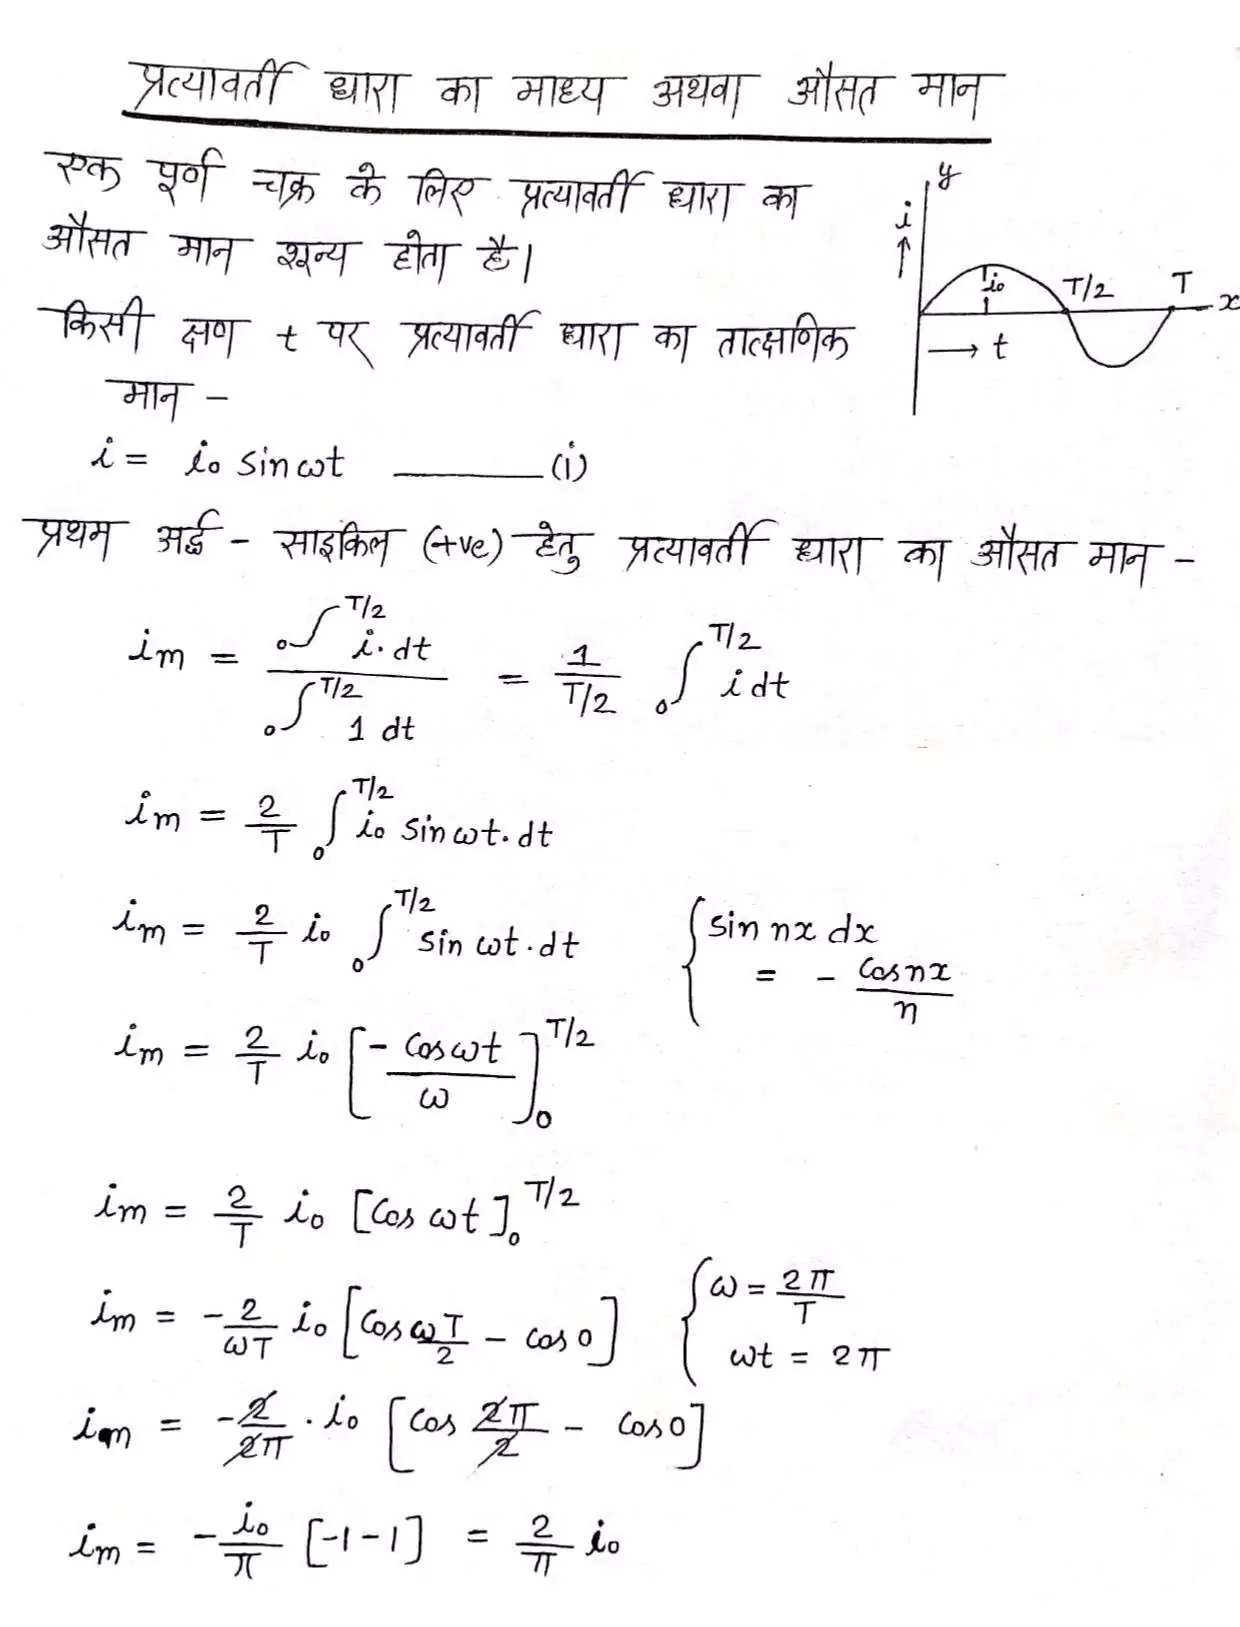 प्रत्यावर्ती धारा का माध्य अथवा औसत मान
एक पूर्ण चक्र के लिए प्रत्यावर्ती धारा का
औसत मान शून्य होता है।
y
i
↑
i₀
T/2
T
x
⟶ t
किसी क्षण t पर प्रत्यावर्ती धारा का तात्क्षणिक
मान -
i = i₀ sin ωt ———— (i)
प्रथम अर्द्ध - साइकिल (+ve) हेतु प्रत्यावर्ती धारा का औसत मान -
iₘ = ₀∫^T/2 i. dt / ₀∫^T/2 1 dt = 1/(T/2) ₀∫^T/2 i dt
iₘ = 2/T ₀∫^T/2 i₀ sin ωt. dt
iₘ = 2/T i₀ ₀∫^T/2 sin ωt. dt
{ sin nx dx
= - cos nx / n
iₘ = 2/T i₀ [- cos ωt / ω]₀^T/2
iₘ = 2/T i₀ [cos ωt]₀^T/2
iₘ = -2/ωT i₀ [cos ωT/2 - cos 0]
{ ω = 2π/T
ωt = 2π
iₘ = -2/2π . i₀ [cos 2π/2 - cos 0]
iₘ = - i₀/π [-1-1] = 2/π i₀